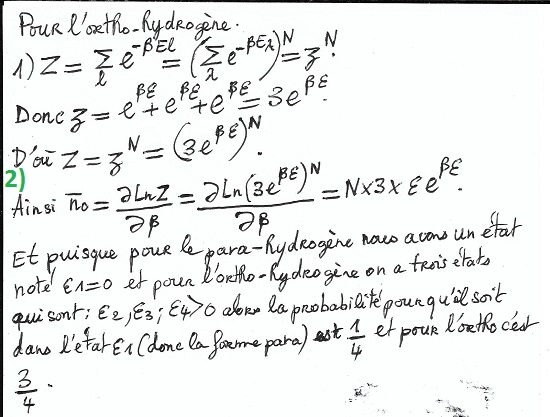 Pour l'ortho-hydrogène.
1) Z = Σ_l e^{-βEl} = (Σ_λ e^{-βEλ})^N = z^N.
Donc z = e^{βε} + e^{βε} + e^{βε} = 3e^{βε}.
D'où Z = z^N = (3e^{βε})^N.
2)
Ainsi n̄o = ∂LnZ/∂β = ∂Ln(3e^{βε})^N/∂β = N×3×εe^{βε}.
Et puisque pour le para-hydrogène nous avons un état
noté ε1=0 et pour l'ortho-hydrogène on a trois états
qui sont: ε2, ε3; ε4>0 alors la probabilité pour qu'il soit
dans l'état ε1 (donc la forme para) est 1/4 et pour l'ortho c'est
3/4.